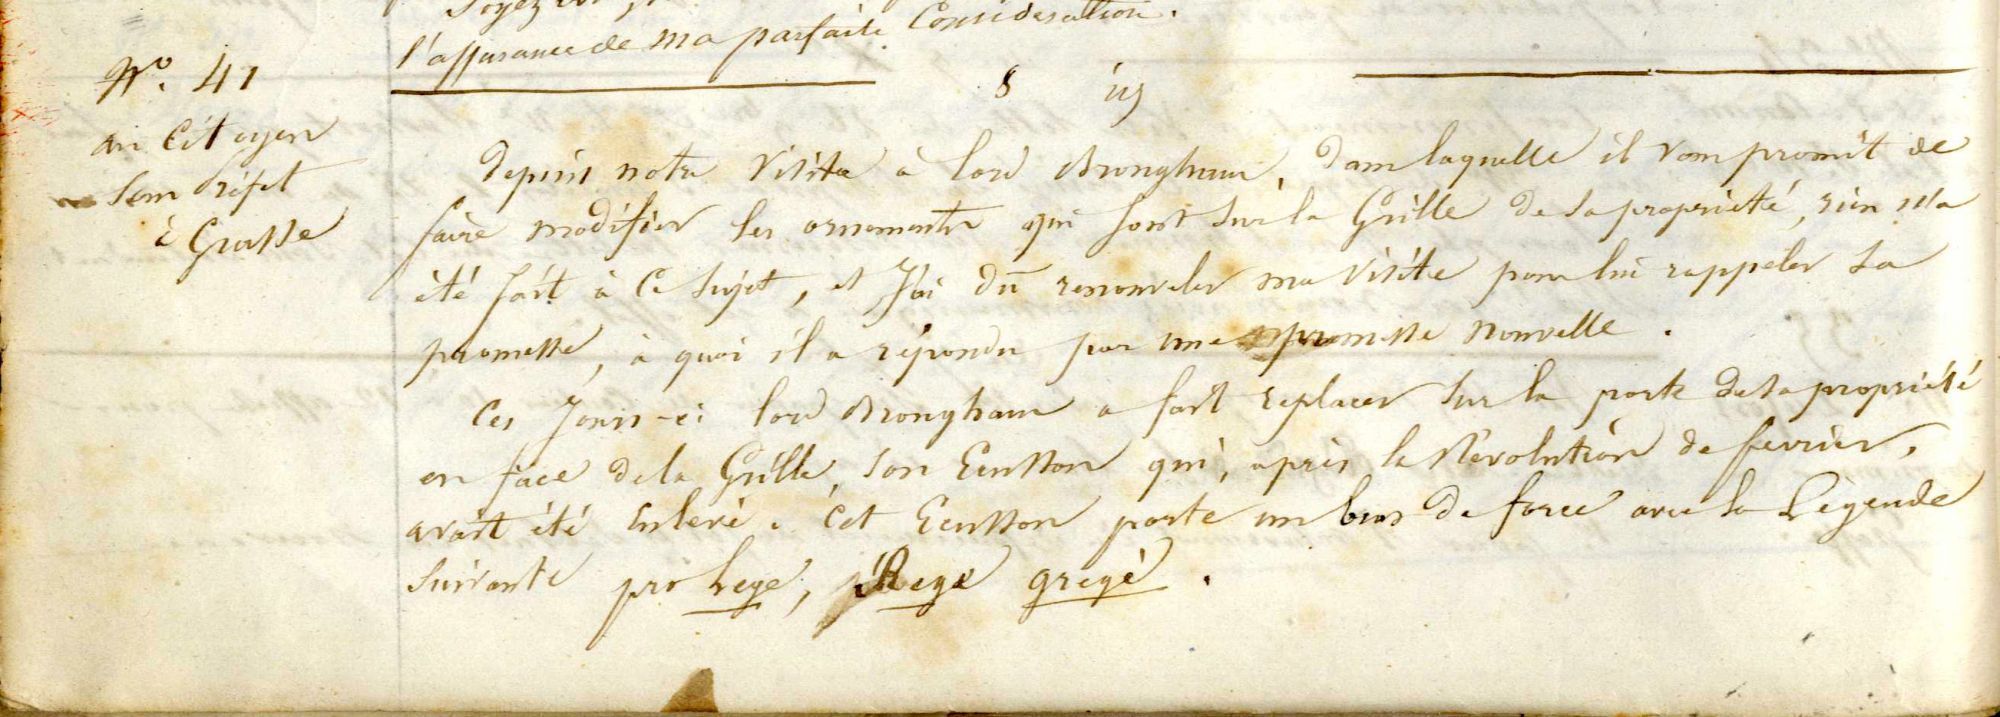 Soyez
l'assurance de ma parfaite Consideration.
N.º 41
au Citoyen
Sous Préfet
à Grasse
8
depuis notre Visite à lord Brougham, dans laquelle il vous promit de
faire modifier les ornements qui sont sur la Grille de sa propriété, rien n'a
été fait à Ce Sujet, et J'ai dû renouveler ma Visite pour lui rappeler sa
promesse, à quoi il a répondu par une promesse nouvelle.
Ces Jours-ci lord Brougham a fait replacer sur la porte de sa propriété
en face de la Grille, son Ecusson qui, après la Révolution de fevrier,
avait été Enlevé. Cet Ecusson porte un bras de force avec la Légende
suivante pro Lege, Rege grege.